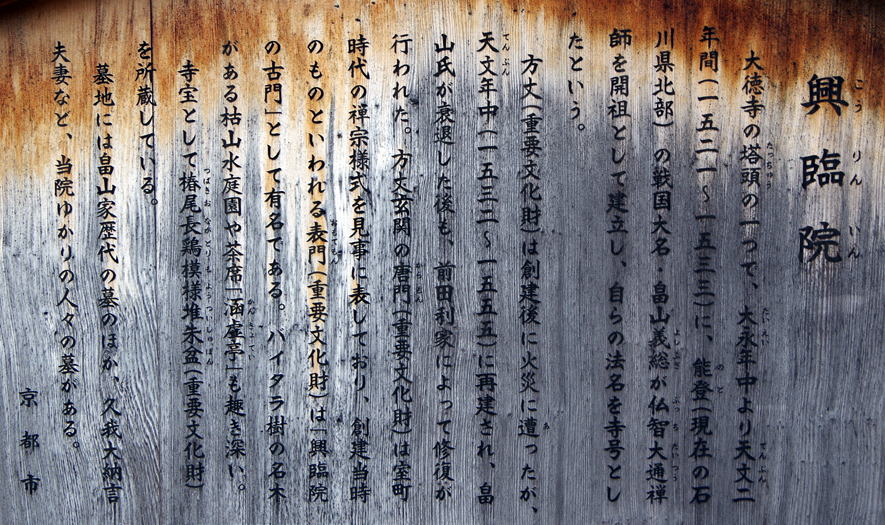 興臨院
大徳寺の塔頭の一つで、大永年中より天文二
年間(一五二一〜一五三三)に、能登(現在の石
川県北部)の戦国大名・畠山義総が仏智大通禅
師を開祖として建立し、自らの法名を寺号とし
たという。
方丈(重要文化財)は創建後に火災に遭ったが、
天文年中(一五三二〜一五五五)に再建され、畠
山氏が衰退した後も、前田利家によって修復が
行われた。方丈玄関の唐門(重要文化財)は室町
時代の禅宗様式を見事に表しており、創建当時
のものといわれる表門(重要文化財)は「興臨院
の古門」として有名である。バイタラ樹の名木
がある枯山水庭園や茶席「涵虚亭」も趣き深い。
寺宝として椿尾長鶏模様堆朱盆(重要文化財)
を所蔵している。
墓地には畠山家歴代の墓のほか、久我大納言
夫妻など、当院ゆかりの人々の墓がある。
京都市